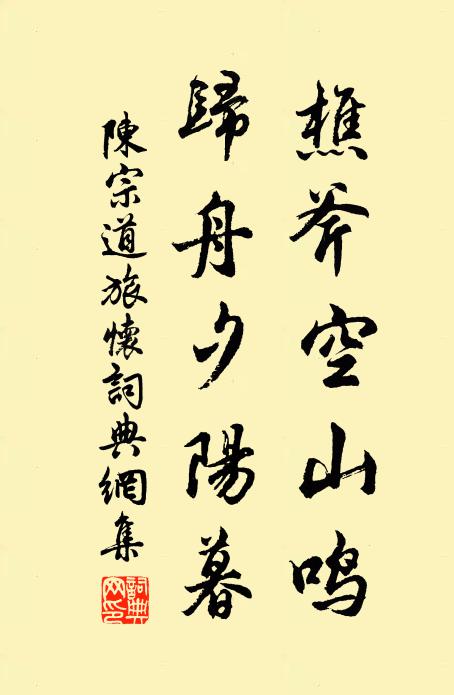 樵斧空山鳴
歸舟夕陽暮
陳宗道旅懷詞典網集
詞典網印